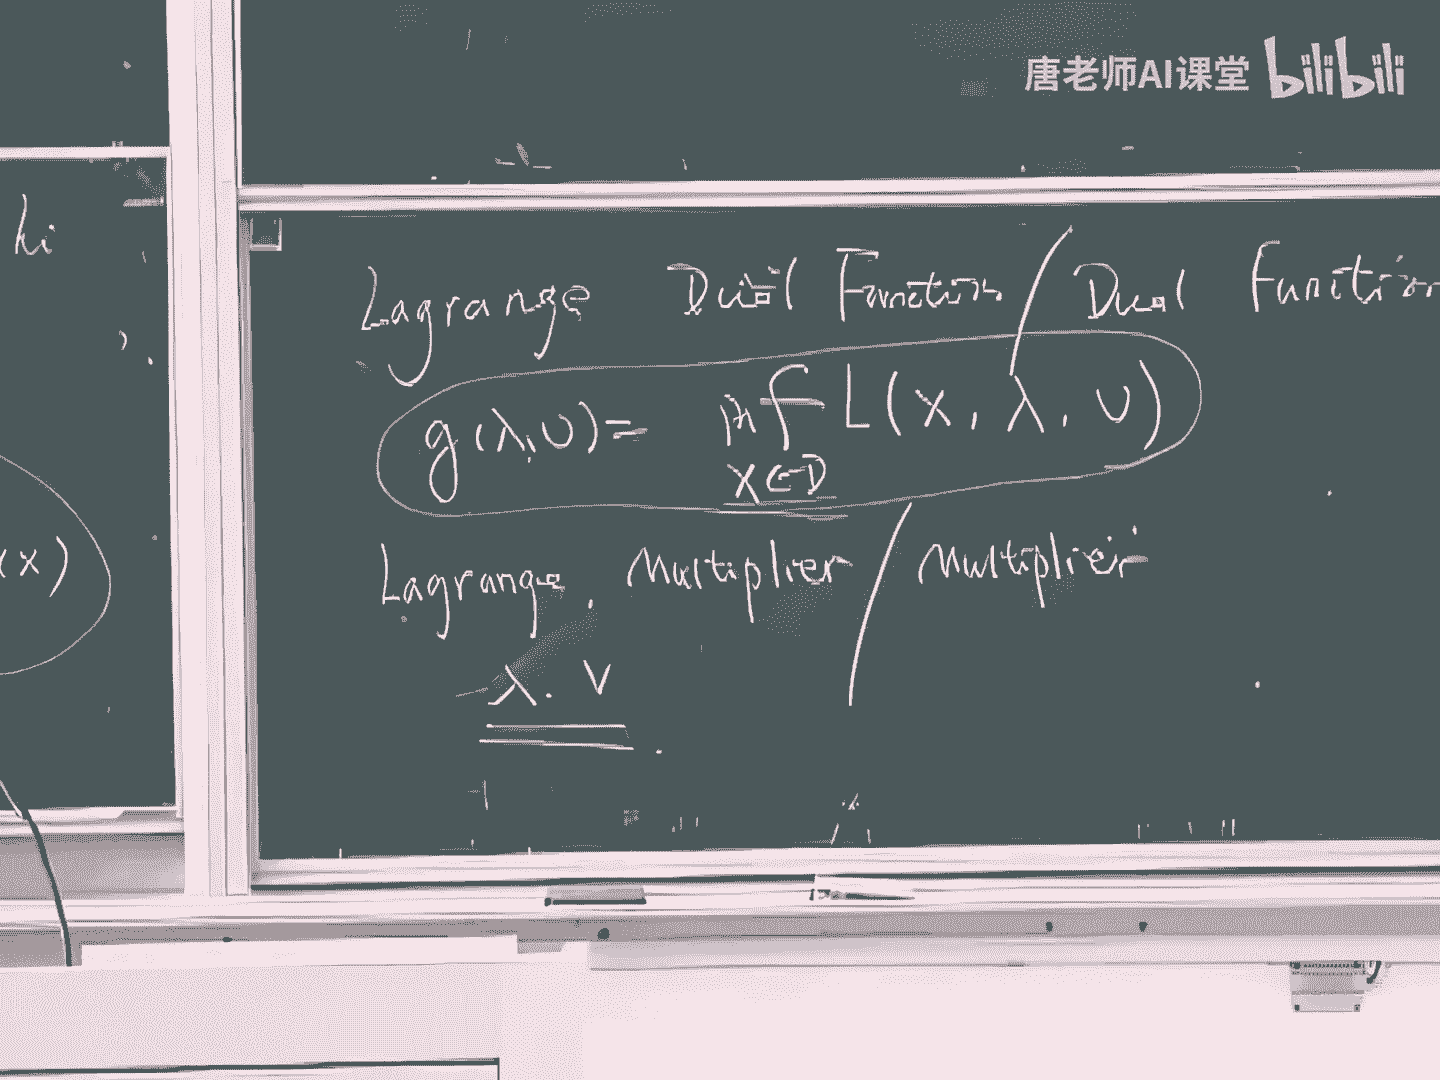 唐老师AI课堂 bilibili
hi
Lagrange Dual Function / Dual Function
g(λ,υ)= inf L(x, λ, υ)
x∈D
(x)
Lagrange Multiplier / Multiplier
λ. ν